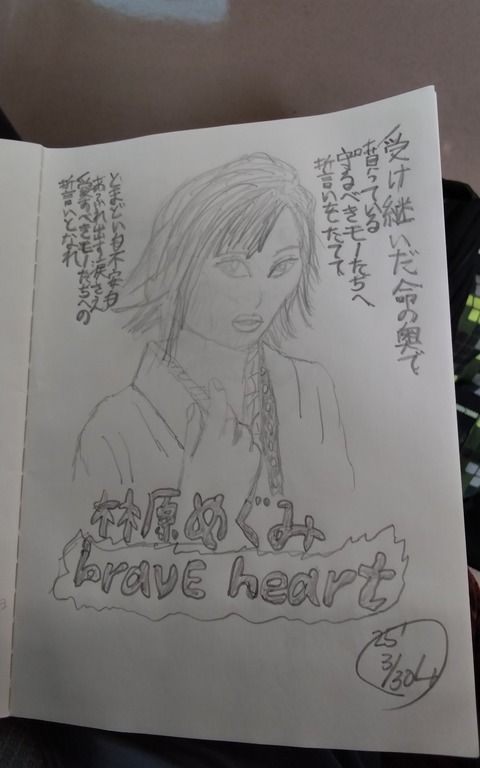 受け継いだ命の奥で
猪っている
守るべきモノたちへ
誓いをたてて
とまどいね不安も
あふれ出す涙さえ
愛すべきモノたちへの
誓いとなれ
林原めぐみ
bravE heart
25'
3/30